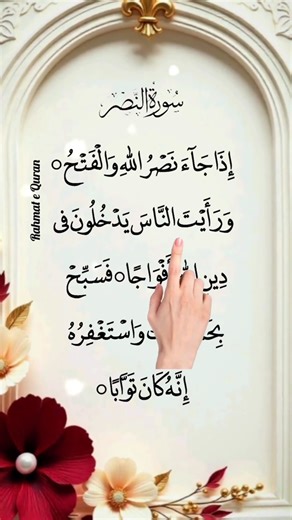 سُوْرَةُ النَّصْر
إِذَا جَآءَ نَصْرُ اللهِ وَالْفَتْحُ ○
وَرَأَيْتَ النَّاسَ يَدْخُلُونَ فِى
دِينِ اللهِ أَفْوَاجًا ○ فَسَبِّحْ
وَاسْتَغْفِرْهُ
إِنَّهُ كَانَ تَوَّابًا ○
Rahmat e Quran